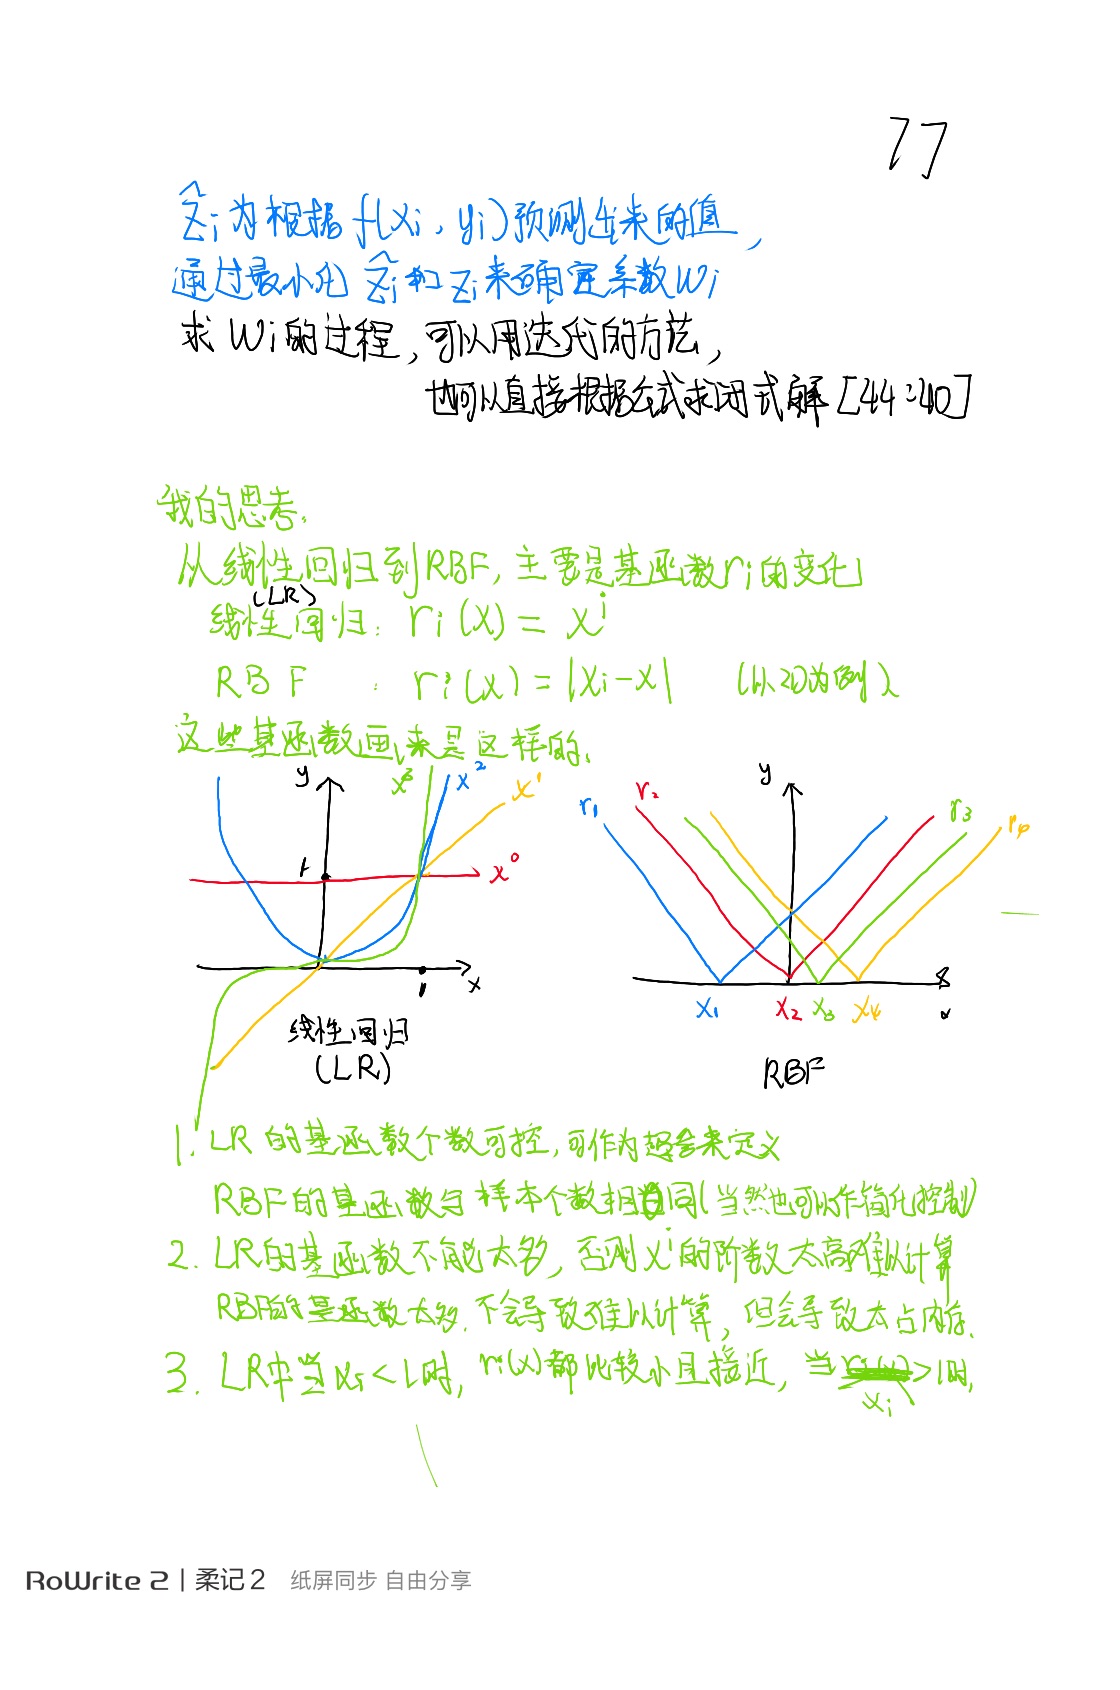 77
ẑi为根据f(xi, yi)预测出来的值,
通过最小化 ẑi和zi来确定系数wi
求 wi的过程, 可以用迭代的方法,
也可以直接根据公式求闭式解[44:40]
我的思考:
从线性回归到RBF, 主要是基函数ri的变化
(LR)
线性回归: ri(x) = x^i
RBF : ri(x) = |xi-x| (以2D为例)
这些基函数画来是这样的:
y x³ x² x¹
1 x⁰
x
1
线性回归
(LR)
y
r1 r2 r3 r4
x1 x2 x3 x4
x
RBF
1. LR 的基函数个数可控, 可作为超参来定义
RBF的基函数与样本个数相同(当然也可以作简化控制)
2. LR的基函数不能太多, 否则x^i的阶数太高难以计算
RBF的基函数太多, 不会导致难以计算, 但会导致太占内存.
3. LR中当xi<1时, ri(x)都比较小且接近, 当xi>1时,
RoWrite 2 | 柔记2 纸屏同步 自由分享